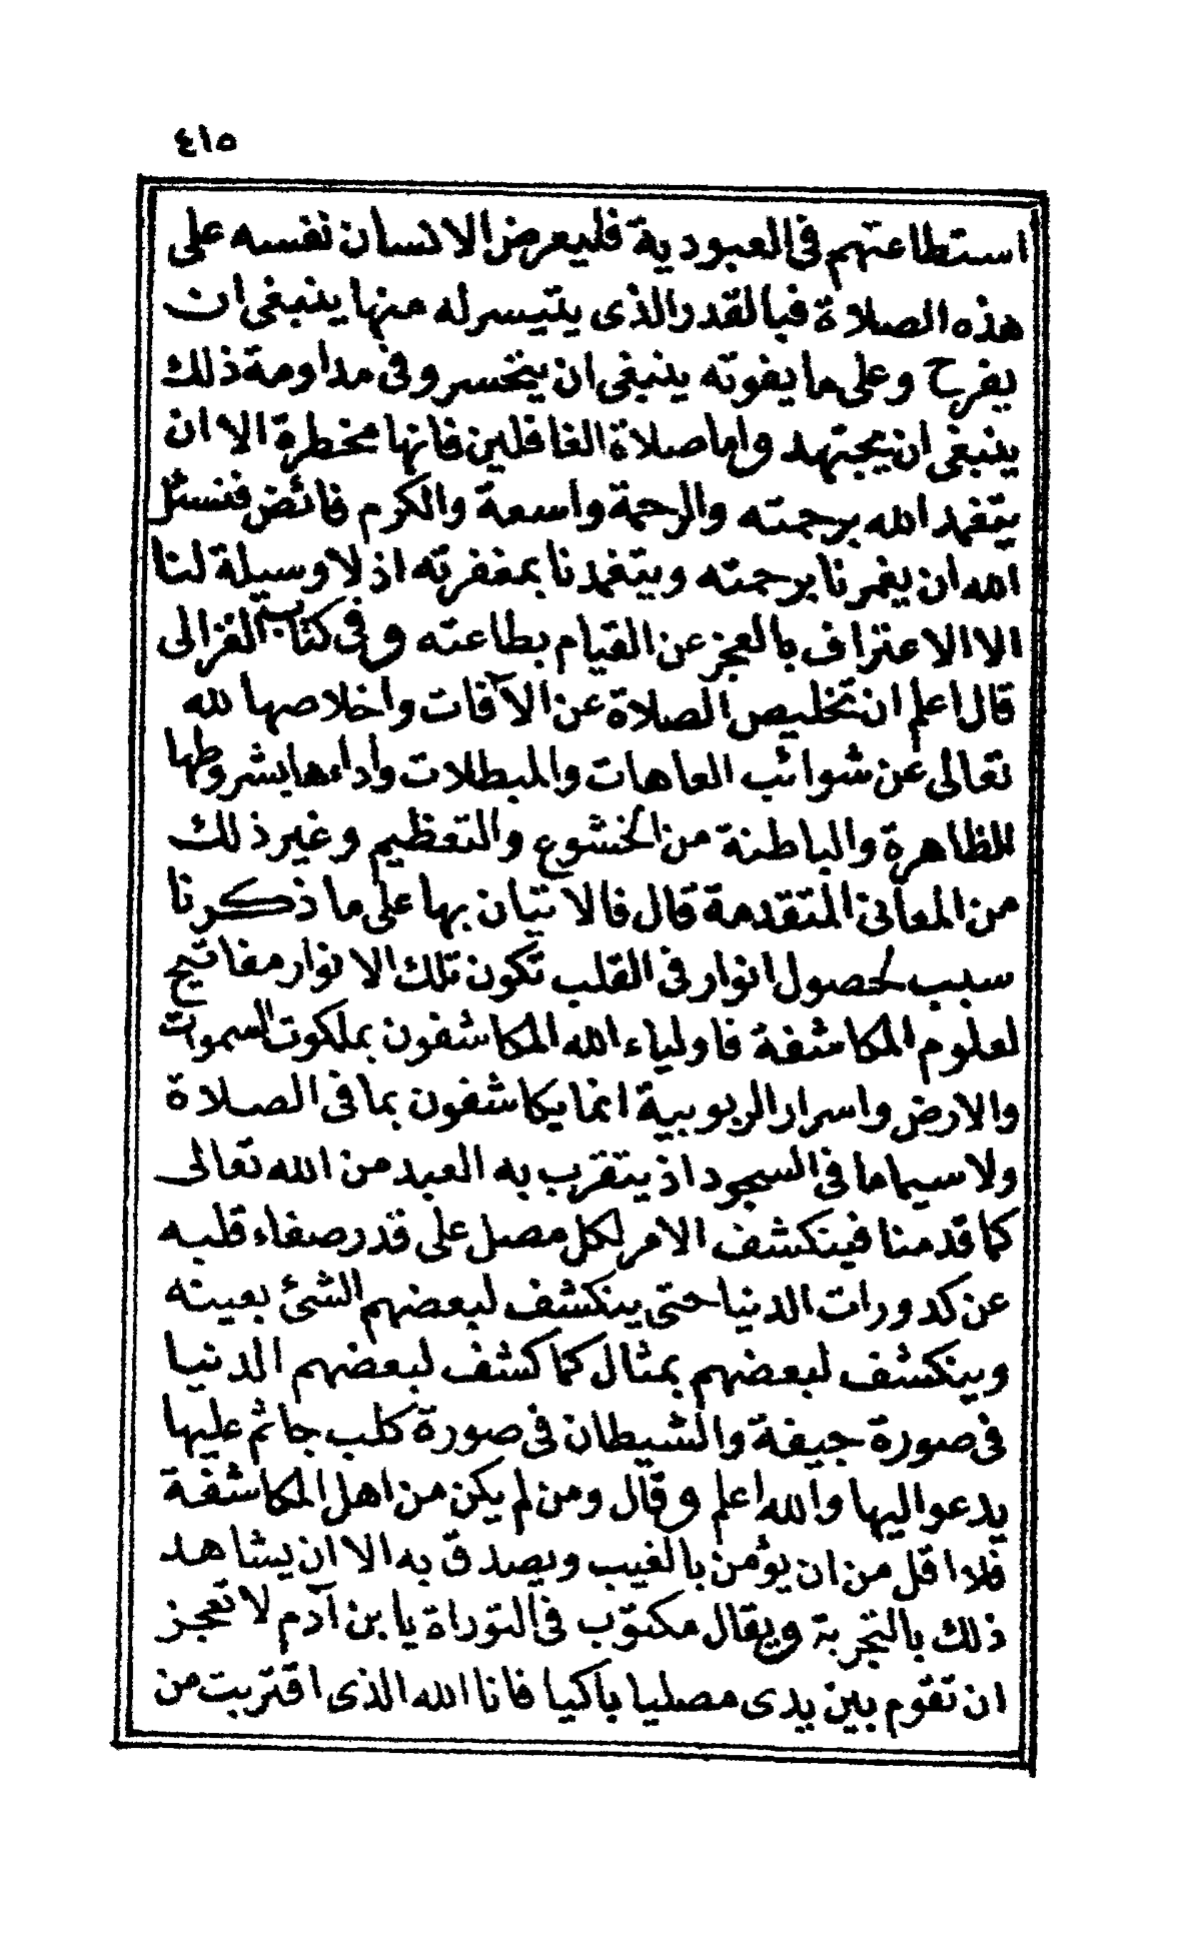 ٤١٥
استطاعتهم فى العبودية فليعرض الانسان نفسه على
هذه الصلاة فبالقدر الذى يتيسر له منها ينبغى ان
يفرح وعلى ما يفوته ينبغى ان يتحسر وفى مداومة ذلك
ينبغى ان يجتهد واما صلاة الغافلين فانها مخطرة الا ان
يتغمد الله برحمته والرحمة واسعة والكرم فائض فنسئل
الله ان يغمرنا برحمته ويتغمدنا بمغفرته اذ لا وسيلة لنا
الا الاعتراف بالعجز عن القيام بطاعته وفى كتاب الغزالى
قال اعلم ان تخليص الصلاة عن الآفات واخلاصها لله
تعالى عن شوائب العاهات والمبطلات واداءها بشروطها
الظاهرة والباطنة من الخشوع والتعظيم وغير ذلك
من المعانى المتقدمة قال فالاتيان بها على ما ذكرنا
سبب لحصول انوار فى القلب تكون تلك الانوار مفاتيح
لعلوم المكاشفة فاولياء الله المكاشفون بملكوت السموات
والارض واسرار الربوبية انما يكاشفون بما فى الصلاة
ولا سيما ما فى السجود اذ يتقرب به العبد من الله تعالى
كما قدمنا فينكشف الامر لكل مصل على قدر صفاء قلبه
عن كدورات الدنيا حتى ينكشف لبعضهم الشئ بعينه
وينكشف لبعضهم بمثال كما كشف لبعضهم الدنيا
فى صورة جيفة والشيطان فى صورة كلب جاثم عليها
يدعو اليها والله اعلم وقال ومن لم يكن من اهل المكاشفة
فلا اقل من ان يؤمن بالغيب ويصدق به الا ان يشاهد
ذلك بالتجربة ويقال مكتوب فى التوراة يا بن آدم لا تعجز
ان تقوم بين يدى مصليا باكيا فانا الله الذى اقتربت من